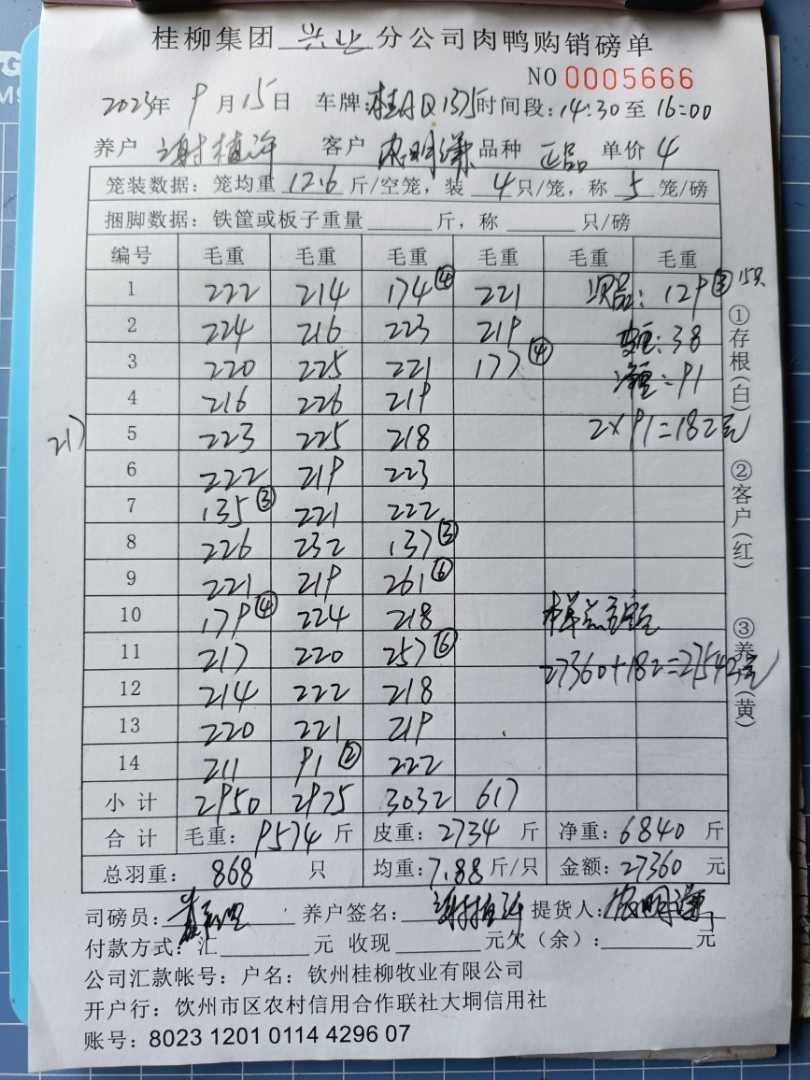 桂柳集团 兴业 分公司肉鸭购销磅单
NO 0005666
2023年 9月15日 车牌:桂AQ1375 时间段:14:30至16:00
养户 谢植许 客户 农明谦 品种 正品 单价 4
笼装数据:笼均重 12.6 斤/空笼,装 4 只/笼,称 5 笼/磅
捆脚数据:铁筐或板子重量 斤,称 只/磅
编号 毛重 毛重 毛重 毛重 毛重 毛重
1 222 214 174④ 221 次品:129③ 15只
2 224 216 223 219 皮重:38
3 220 225 221 177④ 净重:91
4 216 226 219
217 5 223 225 218 2×91=182元
6 222 219 223
7 135③ 221 222
8 226 232 137③
9 221 219 261⑥
10 179④ 224 218
11 217 220 257⑥ 27360+182=27542元
12 214 222 218
13 220 221 219
14 211 91② 222
小计 2950 2975 3032 617
合计 毛重:9574 斤 皮重:2734 斤 净重:6840 斤
总羽重: 868 只 均重:7.88 斤/只 金额:27360 元
①存根(白)
②客户(红)
③养(黄)
司磅员: 养户签名:谢植许 提货人:农明谦
付款方式:汇 元 收现 元欠(余): 元
公司汇款帐号:户名:钦州桂柳牧业有限公司
开户行:饮州市区农村信用合作联社大垌信用社
账号:8023 1201 0114 4296 07